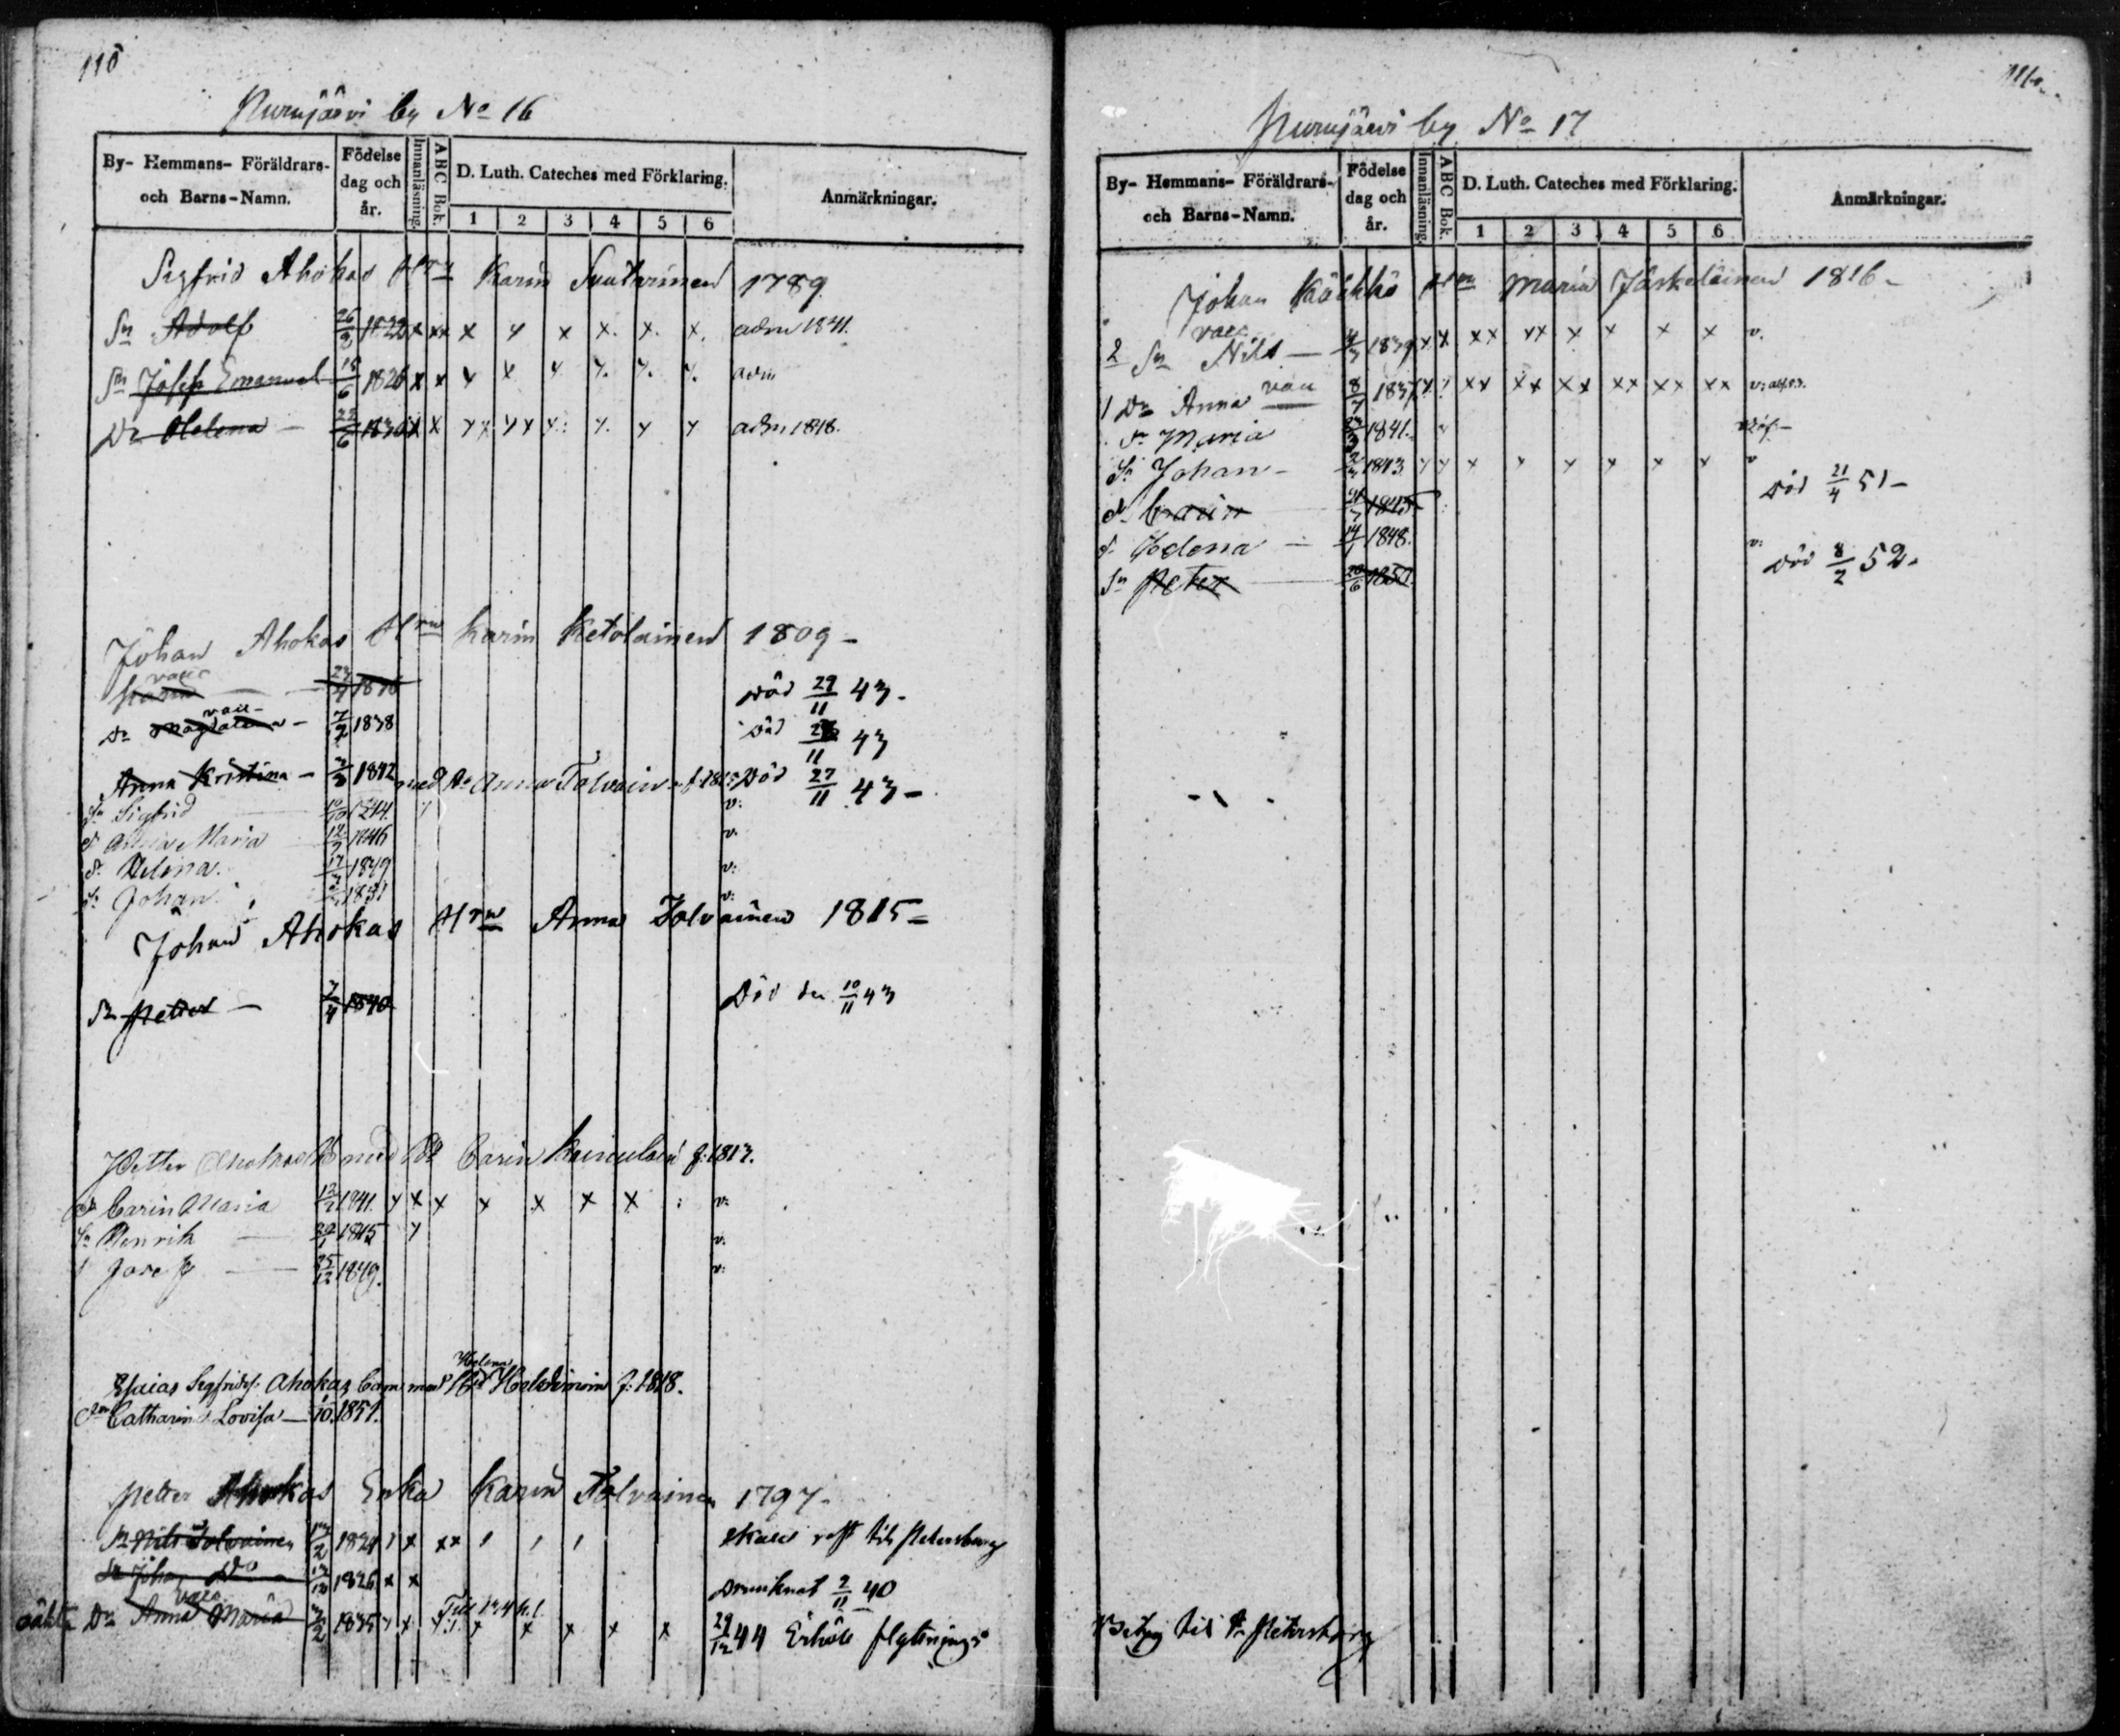 110
Nurmjärvi by No 16
By- Hemmans- Föräldrars- och Barns-Namn.
Födelse dag och år.
Innanläsning.
ABC Bok.
D. Luth. Cateches med Förklaring.
1 2 3 4 5 6
Anmärkningar.
Sigfrid Ahokas Hru Karin 1789
Sn Adolf 26/3 1822 x xx x x x x. x. x. adm 1841.
Sn Josep Emanuel 15/6 1826 x x x x x x. x. x. adm
Dr Helena 22/6 1830 x x xx xx x: x. x x adm 1848.
Johan Ahokas Hru Karin Ketolainen 1809 -
vacc
Karin Död 29/11 43 -
vacc
Dr Magdalena - 7/2 1838 Död 11 43
Anna Kristina - 3/3 1842 med Anna Tolvain f. 1815 Död 27/11 43 -
Sn Sigfrid 10/10 1844. v:
d. Anna Maria 12/7 1846 v.
d. Helena. 17/3 1849 v:
Sn Johan 1851 v:
Johan Ahokas Hru Anna Tolvainen 1815 =
Sn Petter - 3/4 1840 Död den 10/11 43
Petter Ahokas med Carin f: 1813.
dr Carin Maria 12/2 1841. x x x x x x x v:
Sn Henrik 1845 x v.
Josep 25/12 1849. v:
Helena
Esaias Sigfridss. Ahokas Barn med Holdimoin f: 1818.
Catharina Lovisa - 10. 1851.
Petter Ahokas Enka Karin Tolvainen 1797 -
Sn Nils Tolvainen 2 1821 x xx skall rest till Petersburg
Sn Johan Do 1826 x x Drunknat 2/11 40
vacc
oäkta Dr Anna Maria 3/2 1835 x x x x x x x 29/12 44 Erhöll flytnings
Betyg till St Petersburg
111.
Nurmjärvi by No 17
By- Hemmans- Föräldrars- och Barns-Namn.
Födelse dag och år.
Innanläsning.
ABC Bok.
D. Luth. Cateches med Förklaring.
1 2 3 4 5 6
Anmärkningar.
Johan Hru Maria Jäskeläinen 1816 -
vacc
2 Sn Nils - 4/3 1839 x x xx xx x x x x v.
1 Dr Anna vacc 8/7 1837 xx xx xx xx xx xx
d. Maria 1841.
Sn Johan - 2/3 1843 x x x x x x x x v
d. Carin 1845 Död 21/4 51 -
d. Helena - 14/1 1848. v:
Sn Peter 20/6 1850 Död 8/2 52.